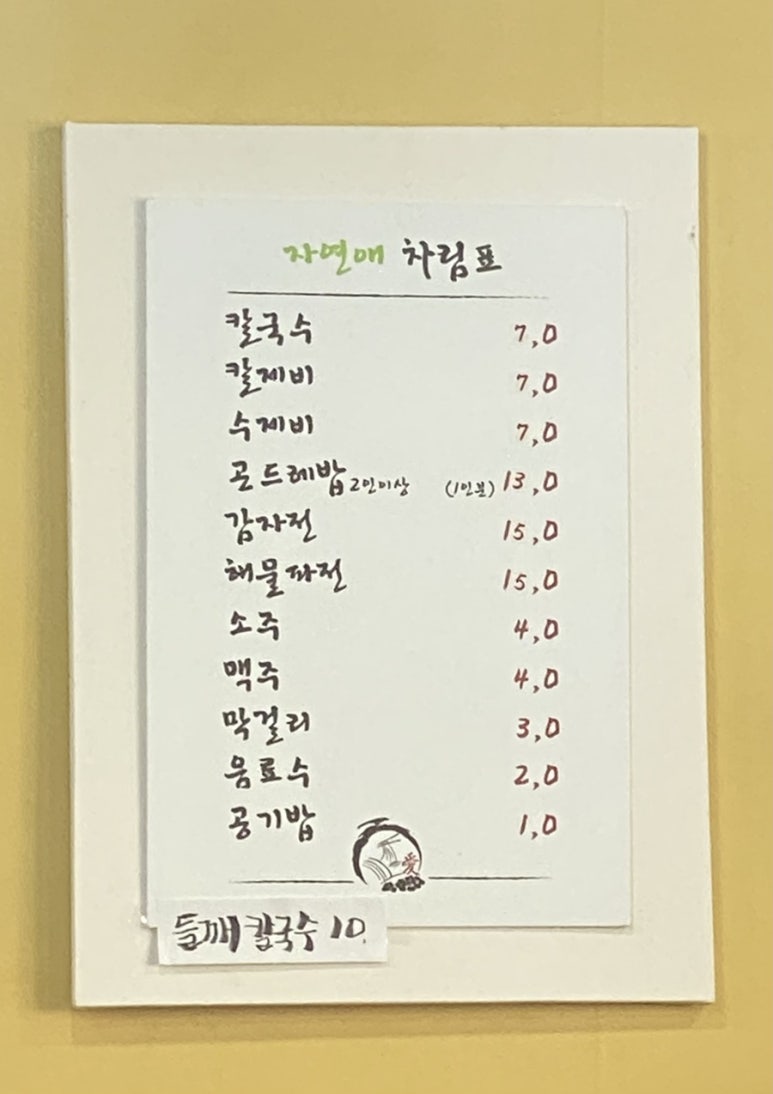 자연애 차림표
칼국수 7,0
칼제비 7,0
수제비 7,0
곤드레밥 2인이상 (1인분) 13,0
감자전 15,0
해물파전 15,0
소주 4,0
맥주 4,0
막걸리 3,0
음료수 2,0
공기밥 1,0
愛
들깨칼국수 10.